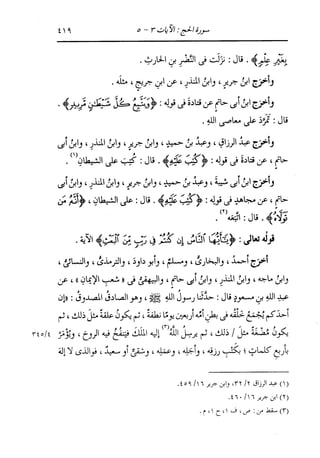 سورة الحج : الآيات ٣ - ٥ ٤١٩
بِغَيْرِ عِلْمٍ﴾ . قال : نزلت فى النَّضْرِ بنِ الحارثِ .
وأخرَج ابنُ جريرٍ ، وابنُ المنذرِ ، عن ابنِ جريجٍ ، مثلَه .
وأخرَج ابنُ أبى حاتمٍ عن قتادةَ فى قولِه : ﴿وَيَتَّبِعُ كُلَّ شَيْطَٰنٍ مَّرِيدٍ﴾ .
قال : تمرَّد على معاصى اللهِ .
وأخرَج عبدُ الرزاقِ ، وعبدُ بنُ حميدٍ ، وابنُ جريرٍ ، وابنُ المنذرِ ، وابنُ أبى
حاتمٍ ، عن قتادةَ فى قولِه : ﴿كُتِبَ عَلَيْهِ﴾ . قال : كُتِبَ على الشيطانِ(١) .
وأخرَج ابنُ أبى شيبةَ ، وعبدُ بنُ حميدٍ ، وابنُ جريرٍ ، وابنُ المنذرِ ، وابنُ أبى
حاتمٍ ، عن مجاهدٍ فى قولِه : ﴿كُتِبَ عَلَيْهِ﴾ . قال : على الشيطانِ ، ﴿أَنَّهُۥ مَن
تَوَلَّاهُ﴾ . قال : اتَّبَعَه(٢) .
قولُه تعالى : ﴿يَٰٓأَيُّهَا النَّاسُ إِن كُنتُمْ فِى رَيْبٍ مِّنَ الْبَعْثِ﴾ الآية .
أخرَج أحمدُ ، والبخارىُّ ، ومسلمٌ ، وأبو داودَ ، والترمذىُّ ، والنسائىُّ ،
وابنُ ماجه ، وابنُ المنذرِ ، وابنُ أبى حاتمٍ ، والبيهقىُّ فى « شعبِ الإيمانِ » ، عن
عبدِ اللهِ بنِ مسعودٍ قال : حدَّثنا رسولُ اللهِ ﷺ ، وهو الصادقُ المصدوقُ : « إن
أحدَكم يُجمَعُ خلقُه فى بطنِ أمِّه أربعين يومًا نطفةً ، ثم يكونُ علقةً مثلَ ذلك ، ثم
يكونُ مُضْغةً مثلَ / ذلك ، ثم يرسلُ اللهُ(٣) إليه الملَكَ فينفُخُ فيه الروحَ ، ويُؤمَرُ ٣٤٥/٤
بأربعِ كلماتٍ ؛ بكَتْبِ رزقِه ، وأجلِه ، وعملِه ، وشقىٌّ أو سعيدٌ ، فوالذى لا إلهَ
(١) عبد الرزاق ٢/ ٣٢، وابن جرير ١٦/ ٤٥٩.
(٢) ابن جرير ١٦/ ٤٦٠.
(٣) سقط من : ص، ف ١، ح ١، م .